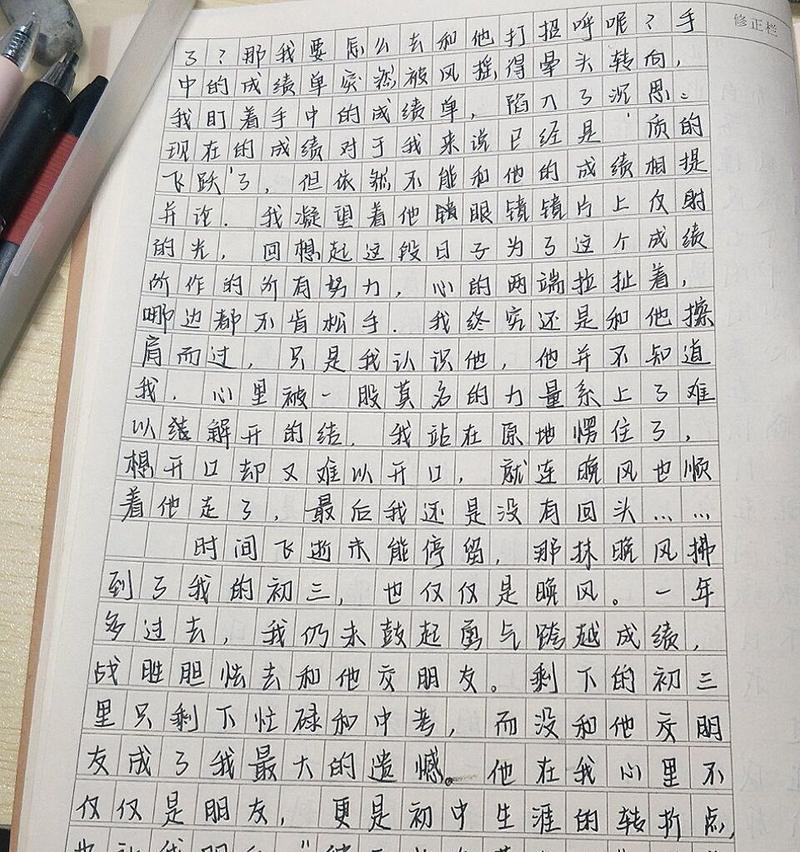 修正栏
了？那我要怎么去和他打招呼呢？手
中的成绩单突然被风摇得晕头转向，
我盯着手中的成绩单，陷入了沉思。
现在的成绩对于我来说已经是‘质的
飞跃’了，但依然不能和他的成绩相提
并论．我凝望着他眼镜镜片上反射
的光，回想起这段日子为了这个成绩
所作的所有努力，心的两端拉扯着，
哪边都不肯松手．我终究还是和他擦
肩而过，只是我认识他，他并不知道
我．心里被一股莫名的力量系上了难
以解开的结．我站在原地愣住了，
想开口却又难以开口，就连晚风也顺
着他走了，最后我还是没有回头……
时间飞逝未能停留，那抹晚风拂
到了我的初三，也仅仅是晚风。一年
多过去，我仍未鼓起勇气跨越成绩，
战胜胆怯去和他交朋友。剩下的初三
里只剩下忙碌和中考，而没和他交朋
友成了我最大的遗憾。他在我心里不
仅仅是朋友，更是初中生涯的转折点，